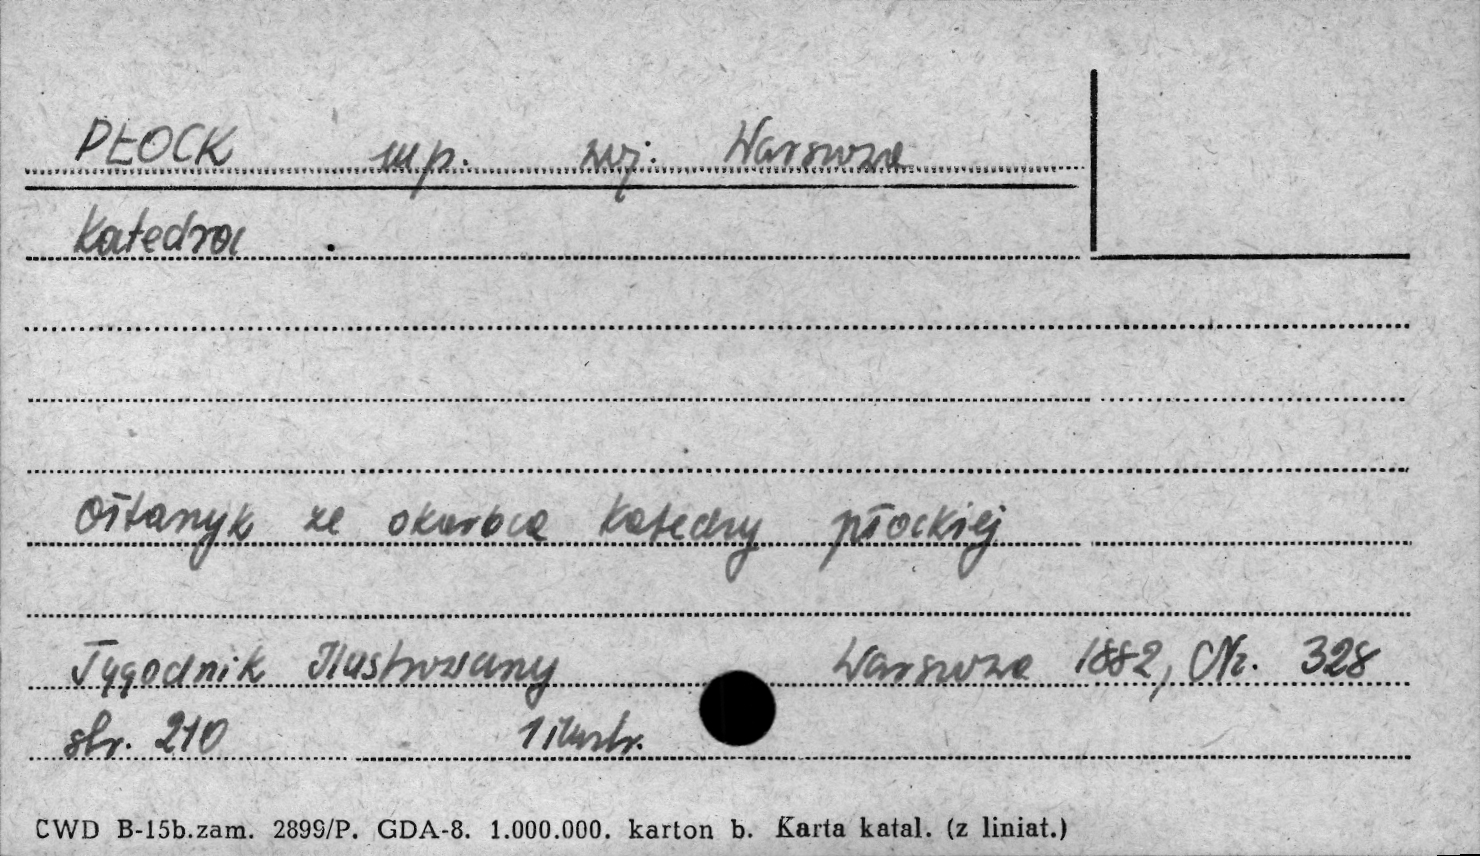 PŁOCK mp. woj. Warszwa
Katedra.
Ołtarzyk ze skarbca katedry płockiej
Tygodnik Ilustrowany Warszawa 1882, Nr. 328
str. 210 1 ilustr.
CWD B-15b.zam. 2899/P. GDA-8. 1.000.000. karton b. Karta katal. (z liniat.)